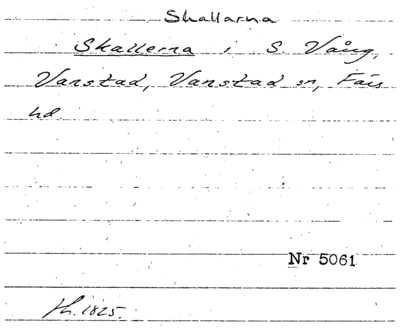 Skallarna
Skallerna i S. Vång,
Vanstad, Vanstad sn, Färs
hd
Nr 5061
1825.